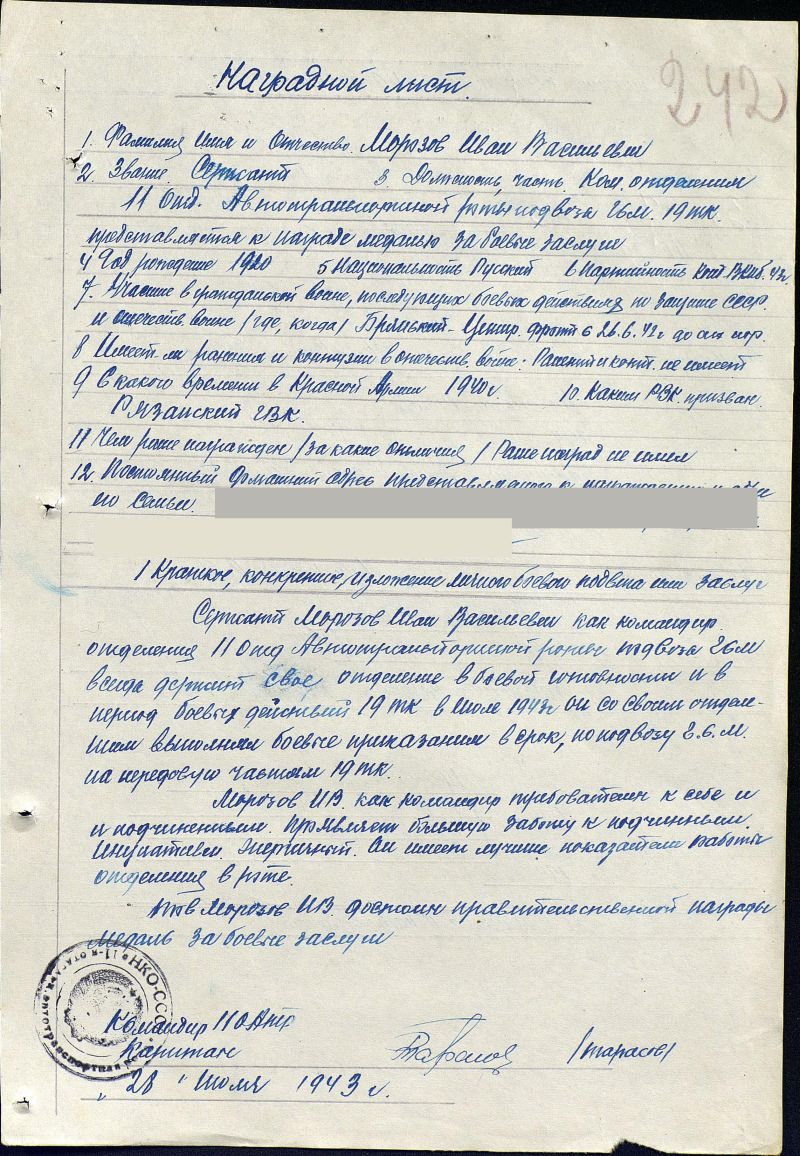 Наградной лист.
242
1. Фамилия Имя и Отчество. Морозов Иван Васильевич
2. Звание Сержант 3. Должность, часть. Ком. отделения
11 Отд. Автотранспортной роты подвоза ГСМ. 19 тк.
представляется к награде медалью За боевые заслуги
4 Год рождение 1920 5 Национальность Русский 6 Партийность Канд ВКПб. 43г.
7. Участие в гражданской войне, последующих боевых действиях по защите СССР.
и отечеств. войне /где, когда/ Брянский - Центр. фронт с 26.6.42г до сих пор.
8 Имеет ли ранения и контузии в отечеств. войне. Ранен и конт. не имеет
9 С какого времени в Красной Армии 1940г. 10. Каким РВК. призван.
Рязанский ГВК.
11 Чем ранее награжден /за какие отличия/ Ранее наград не имел
12. Постоянный домашний адрес представляемого к награждению и адрес
его семьи.
/ Краткое, конкретное, изложение личного боевого подвига или заслуг
Сержант Морозов Иван Васильевич как командир.
отделения 11 Отд Автотранспортной роты подвоза ГСМ
всегда держит свое отделение в боевой готовности и в
период боевых действий 19 тк в июле 1943г он со своим отделе-
нием выполнял боевые приказания в срок, по подвозу Г.С.М.
на передовую частям 19 тк.
Морозов ИВ. как командир требователен к себе и
и подчиненным. Проявляет большую заботу к подчинным.
Инициативен. Энергичный. Он имеет лучшие показатели работы
отделения в роте.
Тов Морозов ИВ. достоин правительственной награды
медаль За боевые заслуги
НКО-СССР
11-я отдельн. автотранспортная
Командир 11 ОАтр
Капитан Тарасов /Тарасов/
„ 28 " Июля 1943 г.